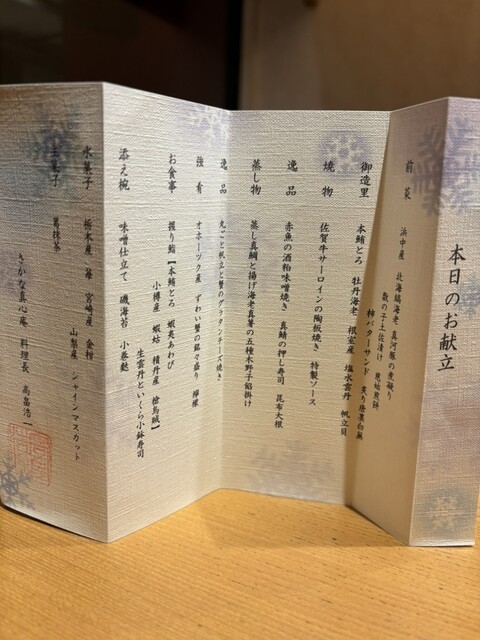 本日のお献立
前菜
浜中産 北海縞海老 真河豚の煮凝り
数の子土佐漬け 琥珀煎餅
柿バターサンド 炙り唐墨白蕪
御造里
本鮪とろ 牡丹海老 根室産 塩水雲丹 帆立貝
焼物
佐賀牛サーロインの陶板焼き 特製ソース
逸品
赤魚の酒粕味噌焼き 真鯖の押し寿司 昆布大根
蒸し物
蒸し真鯛と揚げ海老真薯の五種木野子餡掛け
逸品
丸ごと帆立と蟹のグラタンチーズ焼き
強肴
オホーツク産 ずわい蟹の銘々盛り 檸檬
お食事
握り鮨【本鮪とろ 蝦夷あわび
小樽産 蝦蛄 積丹産 槍烏賊】
生雲丹といくら小鉢寿司
添え椀
味噌仕立て 磯海苔 小巻麩
水菓子
栃木産 苺 宮崎産 金柑
山梨産 シャインマスカット
菓子
さかな真心庵 料理長 高畠浩一